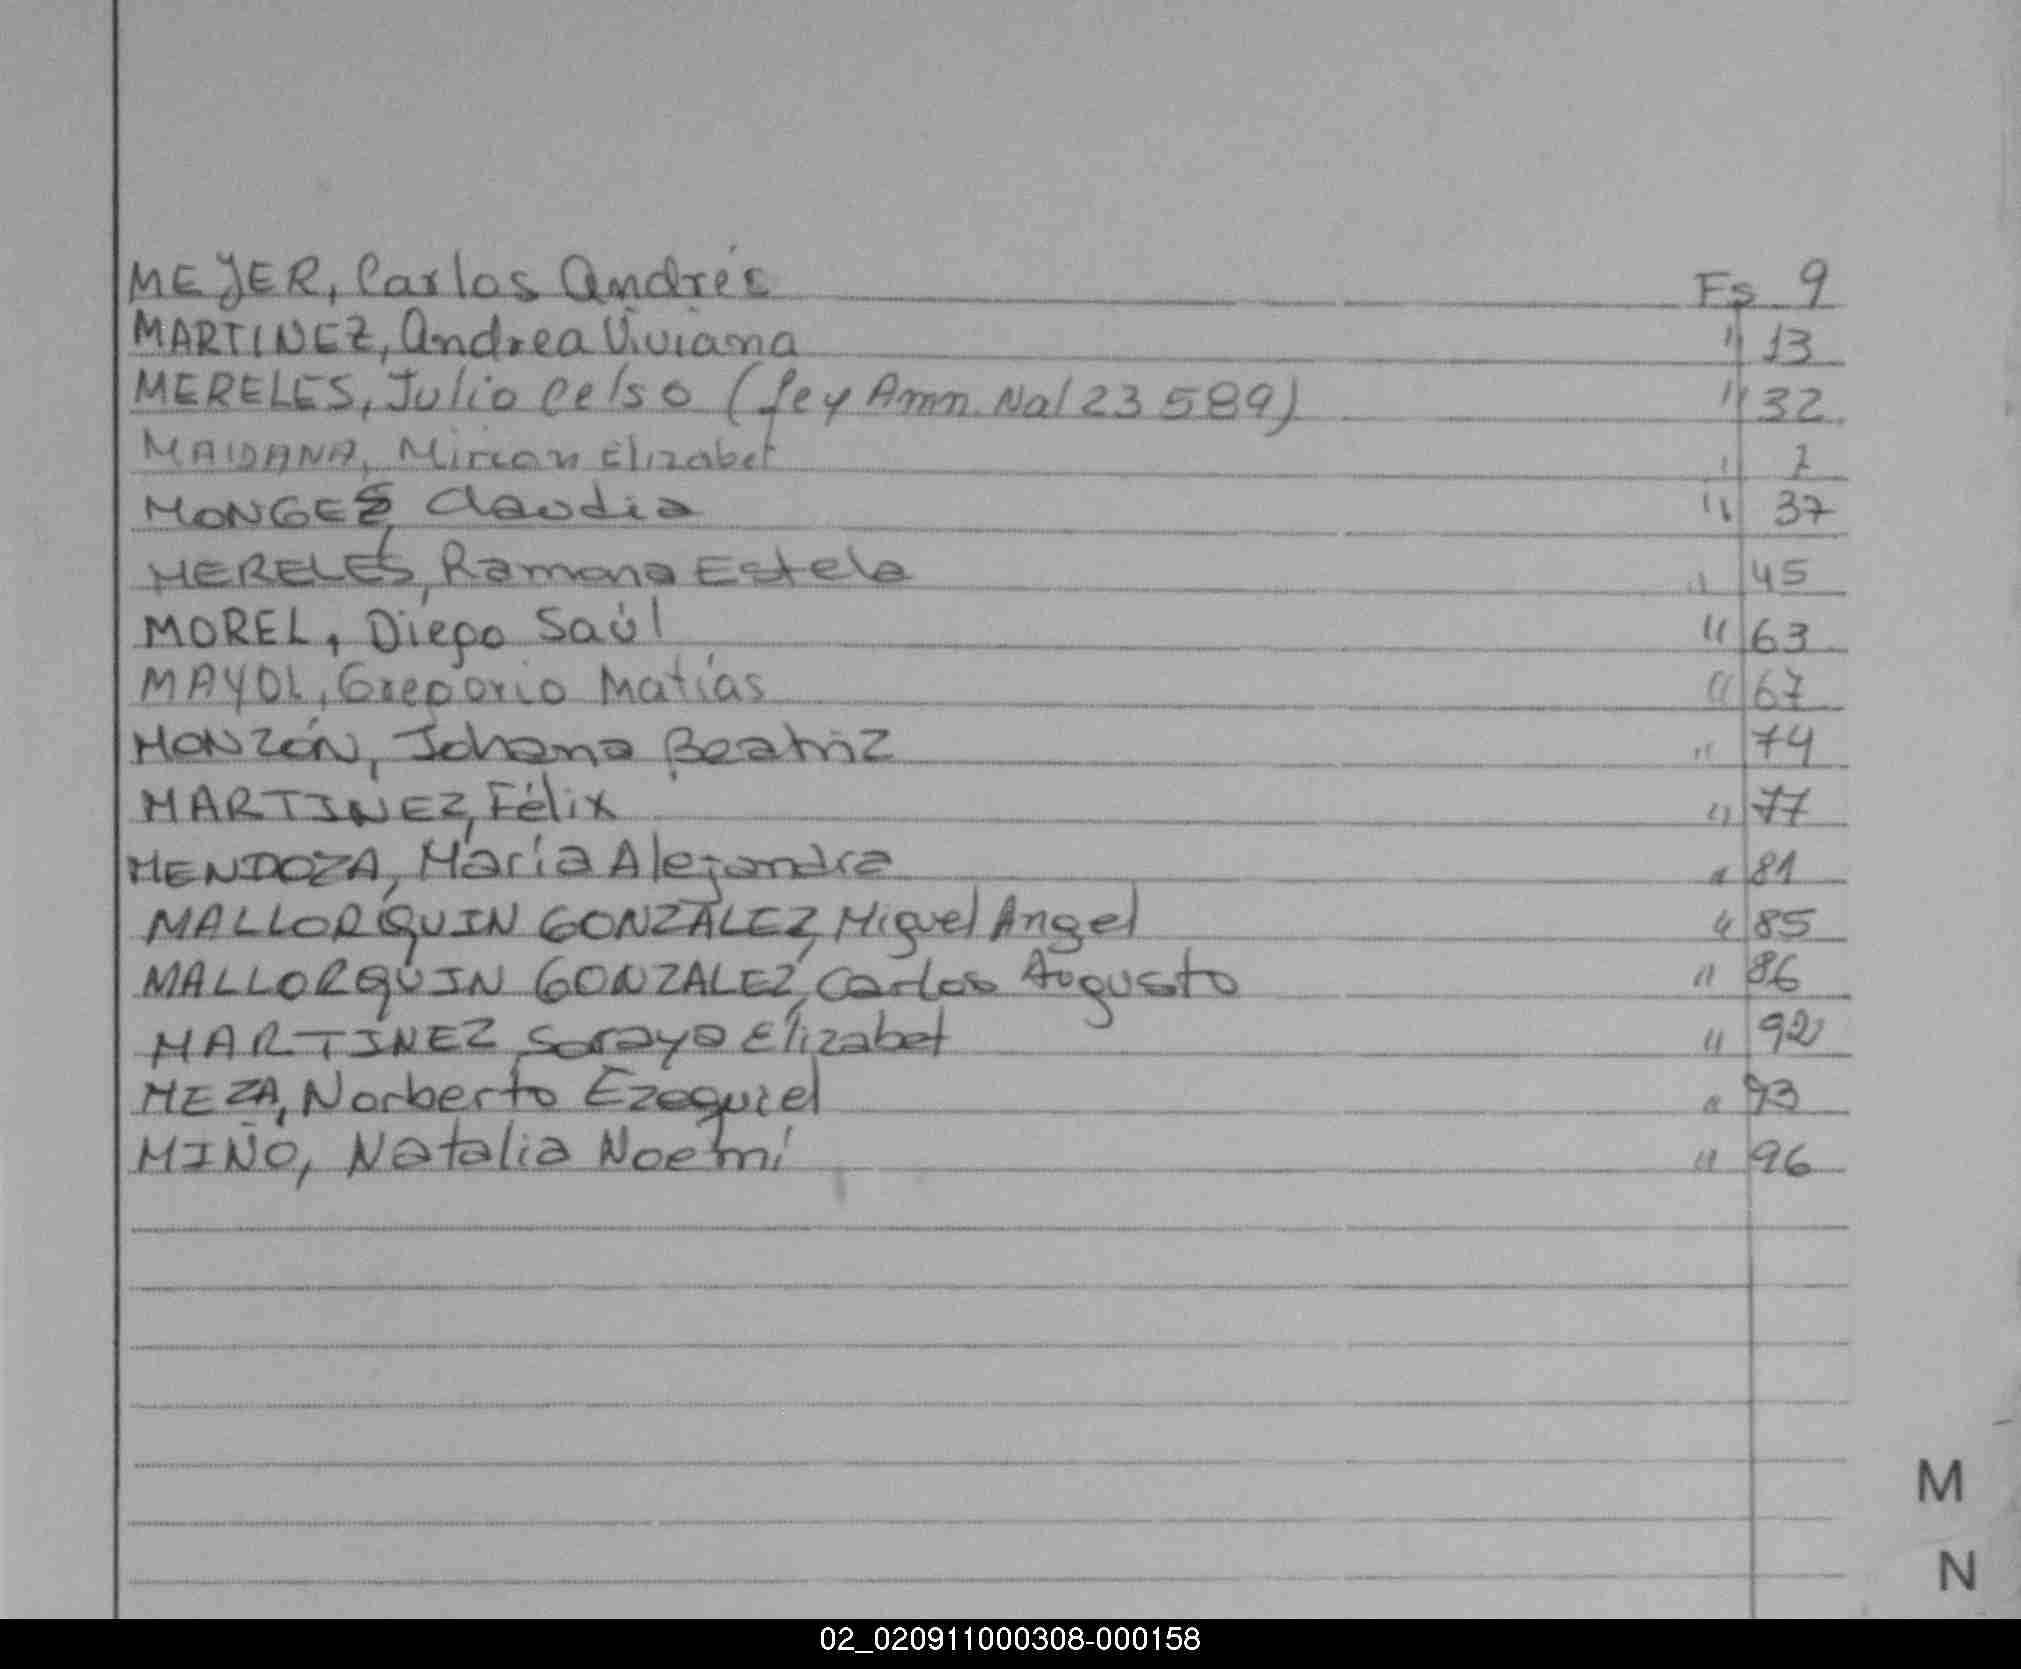 MEJER, Carlos Andrés Fs 9
MARTINEZ, Andrea Viviana " 13
MERELES, Julio Celso (Ley Amn. Nal 23 589) " 32
MAIDANA, Mirian Elizabet "
MONGES, Claudia " 37
MERELES, Ramona Estela " 45
MOREL, Diego Saúl " 63
MAYOL, Gregorio Matías " 67
MONZÓN, Johana Beatriz " 74
MARTINEZ, Félix " 77
MENDOZA, María Alejandra " 81
MALLORQUIN GONZALEZ, Miguel Angel " 85
MALLORQUIN GONZALEZ, Carlos Augusto " 86
MARTINEZ Soraya Elizabet " 92
MEZA, Norberto Ezequiel " 93
MIÑO, Natalia Noemí " 96
M
N
02_020911000308-000158